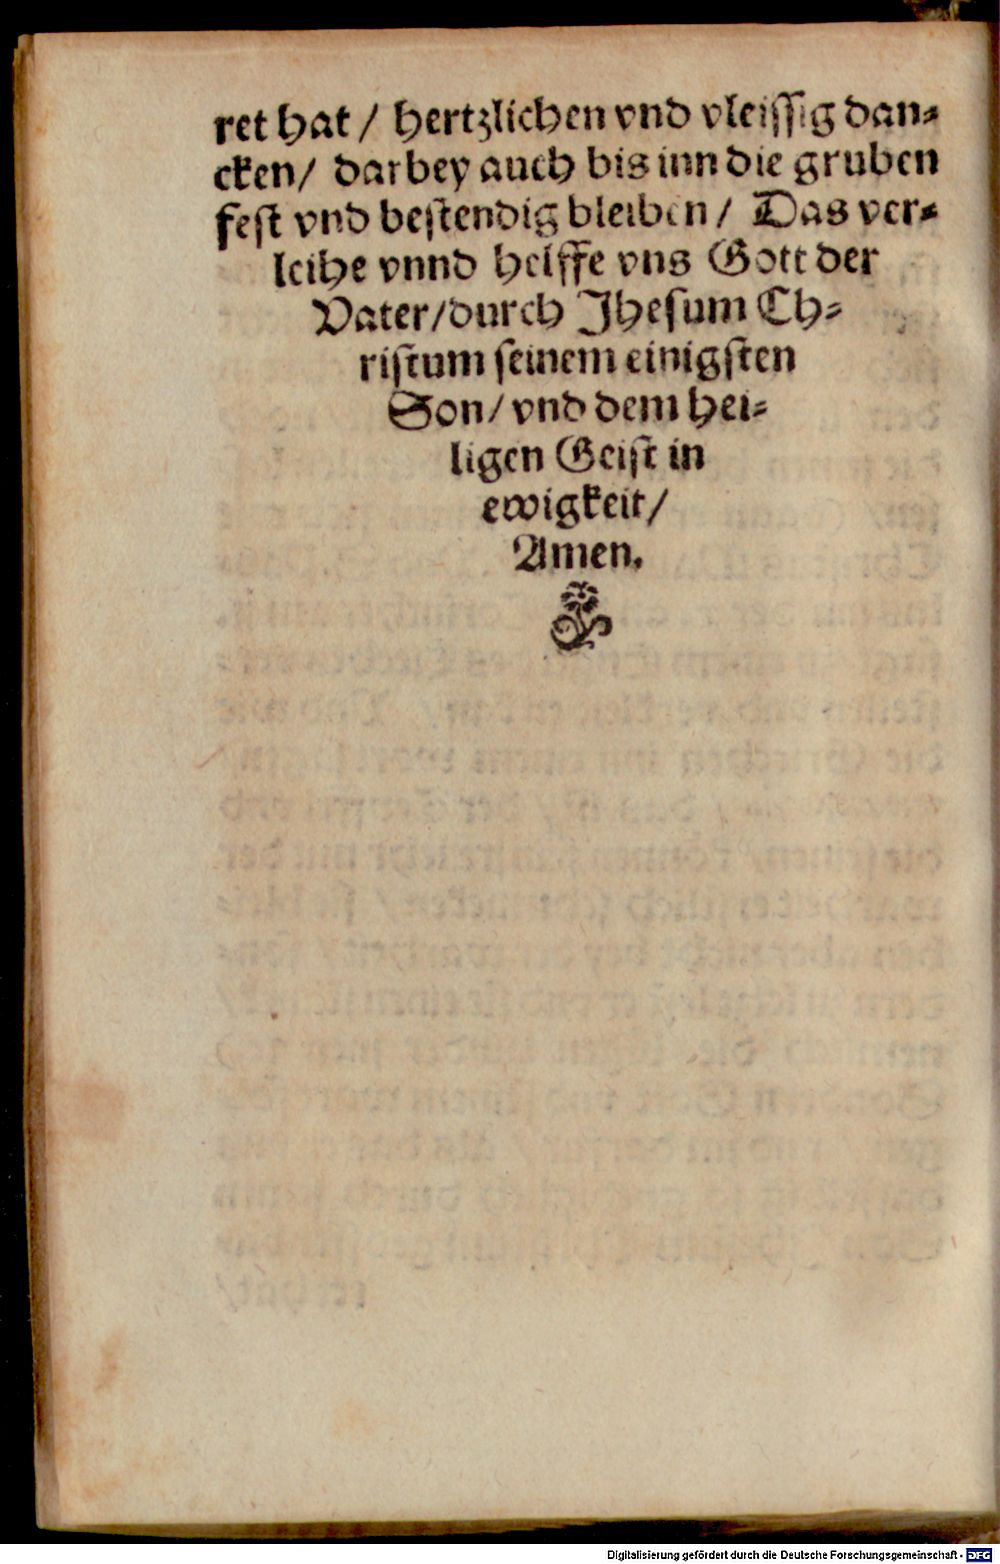 ret hat / hertzlichen vnd vleissig dan-
cken / darbey auch bis inn die gruben
fest vnd bestendig bleiben / Das ver-
leihe vnnd helffe vns Gott der
Vater / durch Jhesum Ch-
ristum seinem einigsten
Son / vnd dem hei-
ligen Geist in
ewigkeit /
Amen.
Digitalisierung gefördert durch die Deutsche Forschungsgemeinschaft - DFG